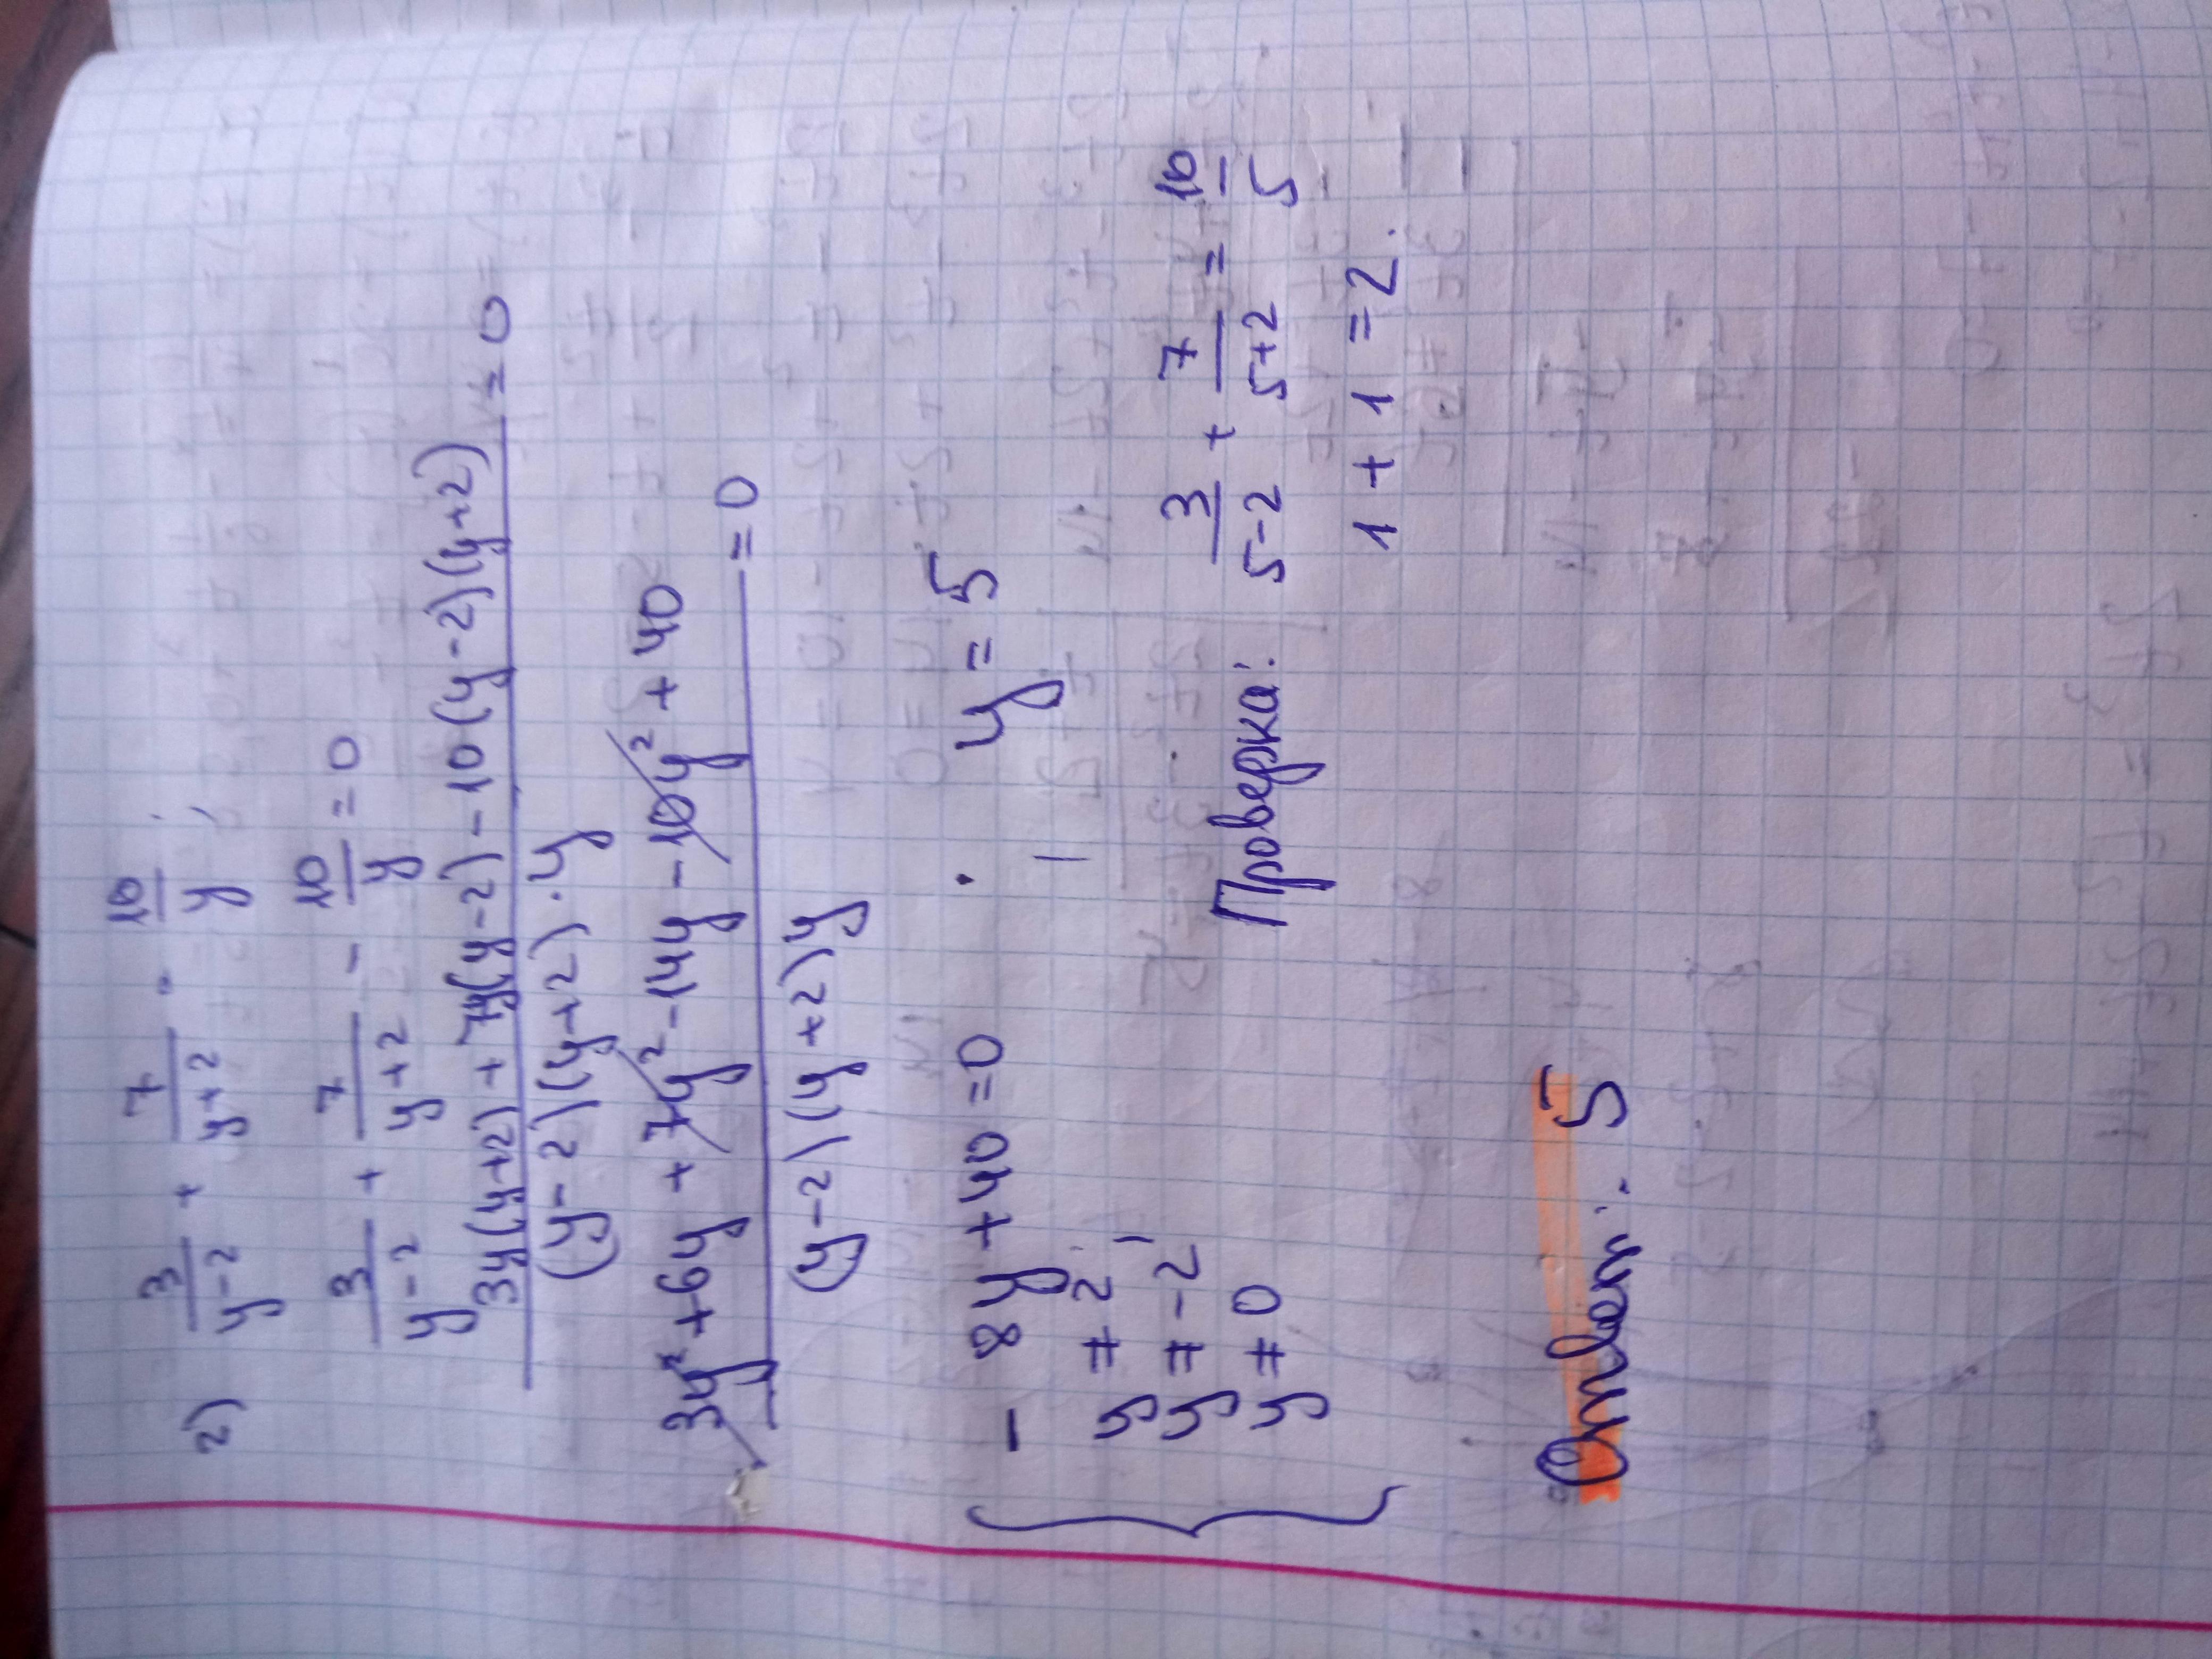 2) 3/(y-2) + 7/(y+2) = 10/y
3/(y-2) + 7/(y+2) - 10/y = 0
(3y(y+2) + 7y(y-2) - 10(y-2)(y+2))/((y-2)(y+2)·y) = 0
(3y² + 6y + 7y² - 14y - 10y² + 40)/((y-2)(y+2)y) = 0
{ - 8y + 40 = 0 y = 5
y ≠ 2
y ≠ -2
y ≠ 0
Проверка: 3/(5-2) + 7/(5+2) = 10/5
1 + 1 = 2.
Ответ: 5